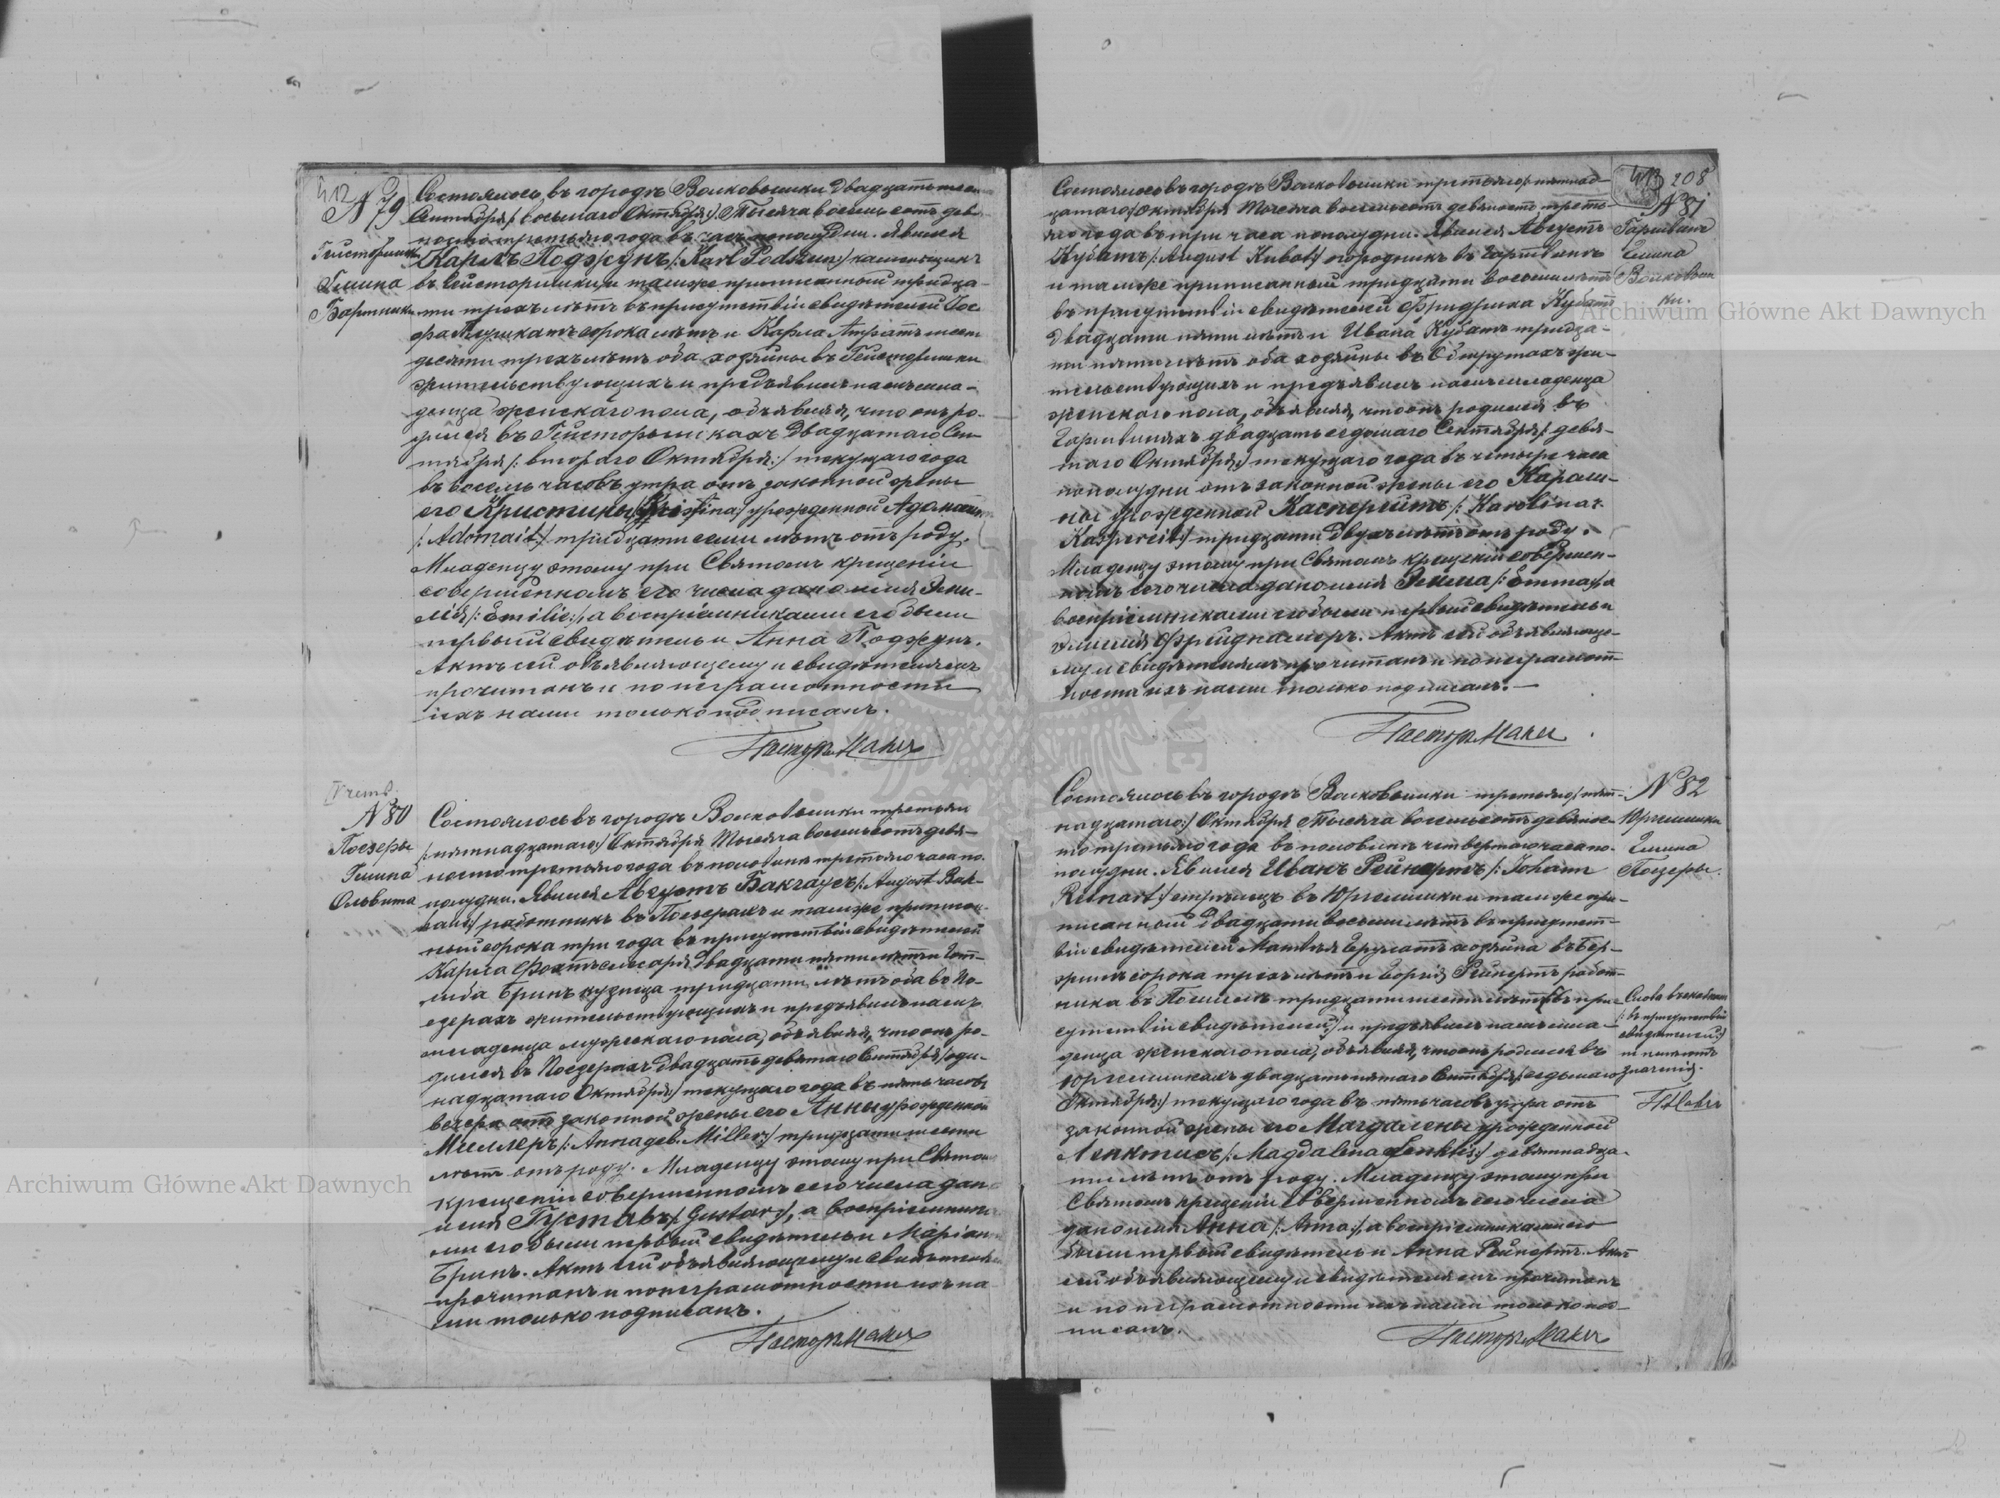 412
N 79
Гейсторишки
Гмина
Бартники
Состоялось въ городѣ Волковышки двадцать шес-
Сентября /: восьмаго Октября :/ Тысяча восемь сотъ дев-
ностo третьяго года въ часъ пополудни. Явился
Карлъ Поджунъ /: Karl Podszun :/ каменщикъ
въ Гейсторишки и тамже приписанный тридца-
ти трехъ лѣтъ въ присутствіи свидѣтелей Іос-
фа сорока лѣтъ и Карла шести
десяти трехъ лѣтъ оба хозяины въ Гейсторишки
жительствующихъ и предъявилъ намъ мла-
денца женскаго пола, объявляя, что онъ ро-
дился въ Гейсторишкахъ двадцатаго Сен-
тября /: втораго Октября :/ текущаго года
въ восемь часовъ утра отъ законной жены
его Кристины /: Kristina :/ урожденной Адомайтъ
/: Adomait :/ тридцати семи лѣтъ отъ роду.
Младенцу этому при Святомъ крещеніи
совершенномъ сего числа дано имя Эми-
лія /: Emilie :/, а воспріемниками его были
первый свидѣтель и Анна Поджунъ.
Актъ сей объявляющему и свидѣтелямъ
прочитанъ и по неграмотности
ихъ нами только подписанъ.
Пасторъ
IV четв.
N 80
Поезеры
Гмина
Ольвита
Состоялось въ городѣ Волковышки третьяго
/: пятнадцатаго :/ Октября Тысяча восемьсотъ девя-
носто третьяго года въ половинѣ третьяго часа по-
полудни. Явился Августъ Бакгаусъ /: August Bak-
haus :/ работникъ въ Поезерахъ и тамже приписан-
ный сорока три года въ присутствіи свидѣтелей
Карла слесаря двадцати пяти лѣтъ и Гот-
либа Бринъ кузнеца тридцати лѣтъ оба въ По-
езерахъ жительствующихъ и предъявилъ намъ
младенца мужескаго пола, объявляя, что онъ ро-
дился въ Поезерахъ двадцать девятаго Сентября /: оди-
надцатаго Октября :/ текущаго года въ пять часовъ
вечера отъ законной жены его Анны урожденной
Миллеръ /: Anna geb. Miller :/ тридцати шести
лѣтъ отъ роду. Младенцу этому при Святомъ
крещеніи совершенномъ сего числа дано
имя Густавъ /: Gustav :/, а воспріемника-
ми его были первый свидѣтель и Маріанна
Бринъ. Актъ сей объявляющему и свидѣтелямъ
прочитанъ и по неграмотности ихъ на-
ми только подписанъ.
Пасторъ
413
208
N 81
Гмина
Волковыш
ки.
Состоялось въ городѣ Волковышки третьяго /: пятнад-
цатаго :/ Октября Тысяча восемьсотъ девяносто треть-
яго года въ три часа пополудни. Явился Августъ
Кубатъ /: August Kubat :/ огородникъ въ
и тамже приписанный тридцати восьми лѣтъ
въ присутствіи свидѣтелей Фридриха Кубатъ
двадцати пяти лѣтъ и Ивана Кубатъ тридца-
ти пяти лѣтъ оба хозяины въ жи-
тельствующихъ и предъявилъ намъ младенца
женскаго пола, объявляя, что онъ родился въ
двадцать седьмаго Сентября /: девя-
таго Октября :/ текущаго года въ четыре часа
пополудни отъ законной жены его Кароли-
ны урожденной Касперейтъ /: Karolina
Kaspereit :/ тридцати двухъ лѣтъ отъ роду.
Младенцу этому при Святомъ крещеніи совершен-
номъ сего числа дано имя Эмма /: Emma :/, а
воспріемниками его были первый свидѣтель и
Эмилія Актъ сей объявляюще-
му и свидѣтелямъ прочитанъ и по неграмот-
ности ихъ нами только подписанъ.
Пасторъ
N 82
Юргелишки
Гмина
Поезеры.
Состоялось въ городѣ Волковышки третьяго /: пят-
надцатаго :/ Октября Тысяча восемьсотъ девянос-
то третьяго года въ половинѣ четвертаго часа по-
полудни. Явился Иванъ Рейнертъ /: Johann
Reinert :/ въ Юргелишки и тамже при-
писанный двадцати восьми лѣтъ въ присутст-
віи свидѣтелей хозяина въ
сорока трехъ лѣтъ и Рейнертъ работ-
ника въ тридцати шести лѣтъ /: въ при-
сутствіи свидѣтелей :/ и предъявилъ намъ мла-
денца женскаго пола, объявляя, что онъ родился въ
Юргелишкахъ двадцать пятаго Сентября /: седьмаго
Октября :/ текущаго года въ пять часовъ утра отъ
законной жены его Магдалены урожденной
Ленктисъ /: Magdalena Lenktis :/ девятнадца-
ти лѣтъ отъ роду. Младенцу этому при
Святомъ крещеніи совершенномъ сего числа
дано имя Анна /: Anna :/, а воспріемниками его
были первый свидѣтель и Анна Рейнертъ. Актъ
сей объявляющему и свидѣтелямъ прочитанъ
и по неграмотности ихъ нами только под-
писанъ.
Пасторъ
Слова въ скобкахъ
/: въ присутствіи
свидѣтелей :/
не имѣютъ
значенія.
Archiwum Główne Akt Dawnych
Archiwum Główne Akt Dawnych